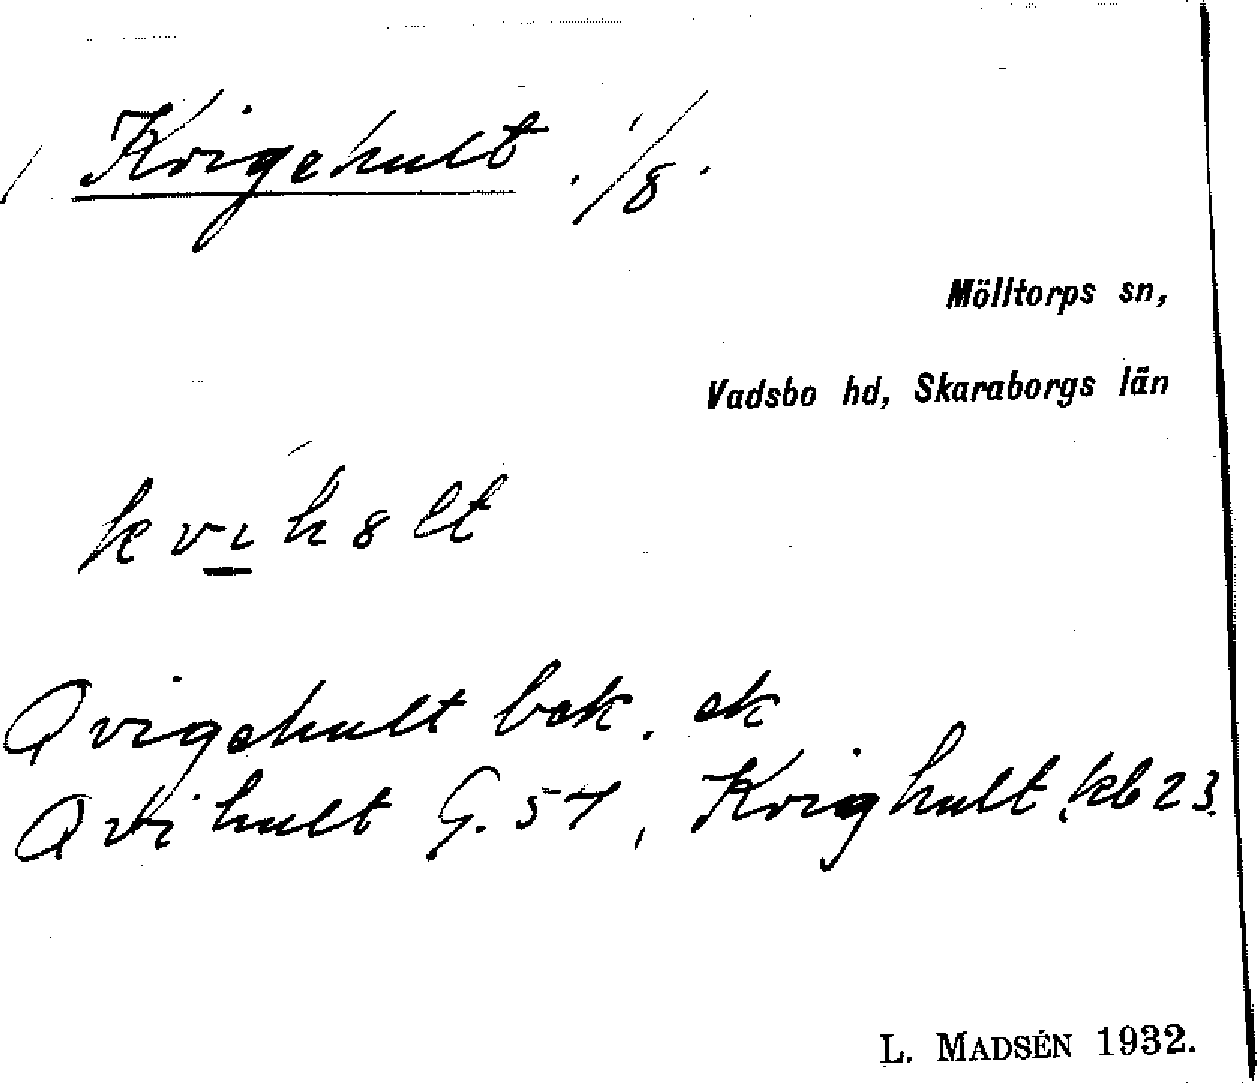 Kvigehult. 1/8.
Mölltorps sn,
Vadsbo hd, Skaraborgs län
kvıh8lt
Qvigehult bok. ek
Qvihult G. 57, Kvighult kb 23.
L. MADSÉN 1932.